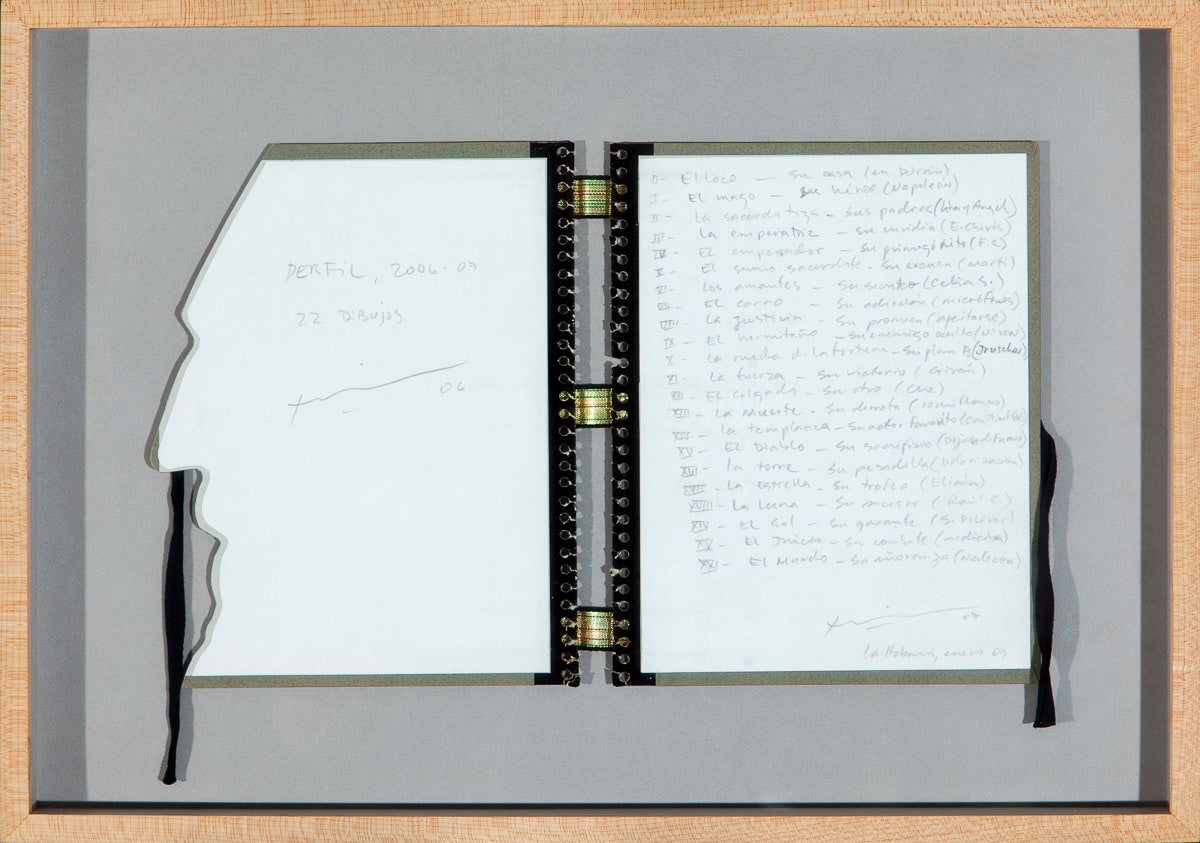 PERFIL, 2006-07
22 DIBUJOS
06
0- El loco — su casa (en Birán)
I- El mago — su héroe (Napoleón)
II- La sacerdotiza — sus padres (Lina y Angel)
III- La emperatriz — su envidia (E. Chivás)
IV- El emperador — su primogénito (F. C)
V- El sumo sacerdote — su excusa (Martí)
VI- Los amantes — su susto (Celia S.)
El carro — su adicción (micrófonos)
VIII- La justicia — su promesa (afeitarse)
IX- El hermitaño — su enemigo oculto (Nixon)
X- La rueda de la fortuna — su plan B (Jruschov)
XI- La fuerza — su victoria (Girón)
XII- El colgado — su otro (Che)
XIII- La Muerte — su derrota (10 millones)
XIV- La templanza — su actor favorito
XV- El Diablo — su sacrificio (Dejar de fumar)
XVI- La torre — su pesadilla (Dolarización)
XVII- La Estrella — su trofeo (Elián)
XVIII- La Luna — su sucesor (Raúl C.)
XIX- El Sol — su garante (S. Bolívar)
XX- El Juicio — su consuelo (medicina)
XXI- El Mundo — su añoranza (Malecón)
07
La Habana, enero 07